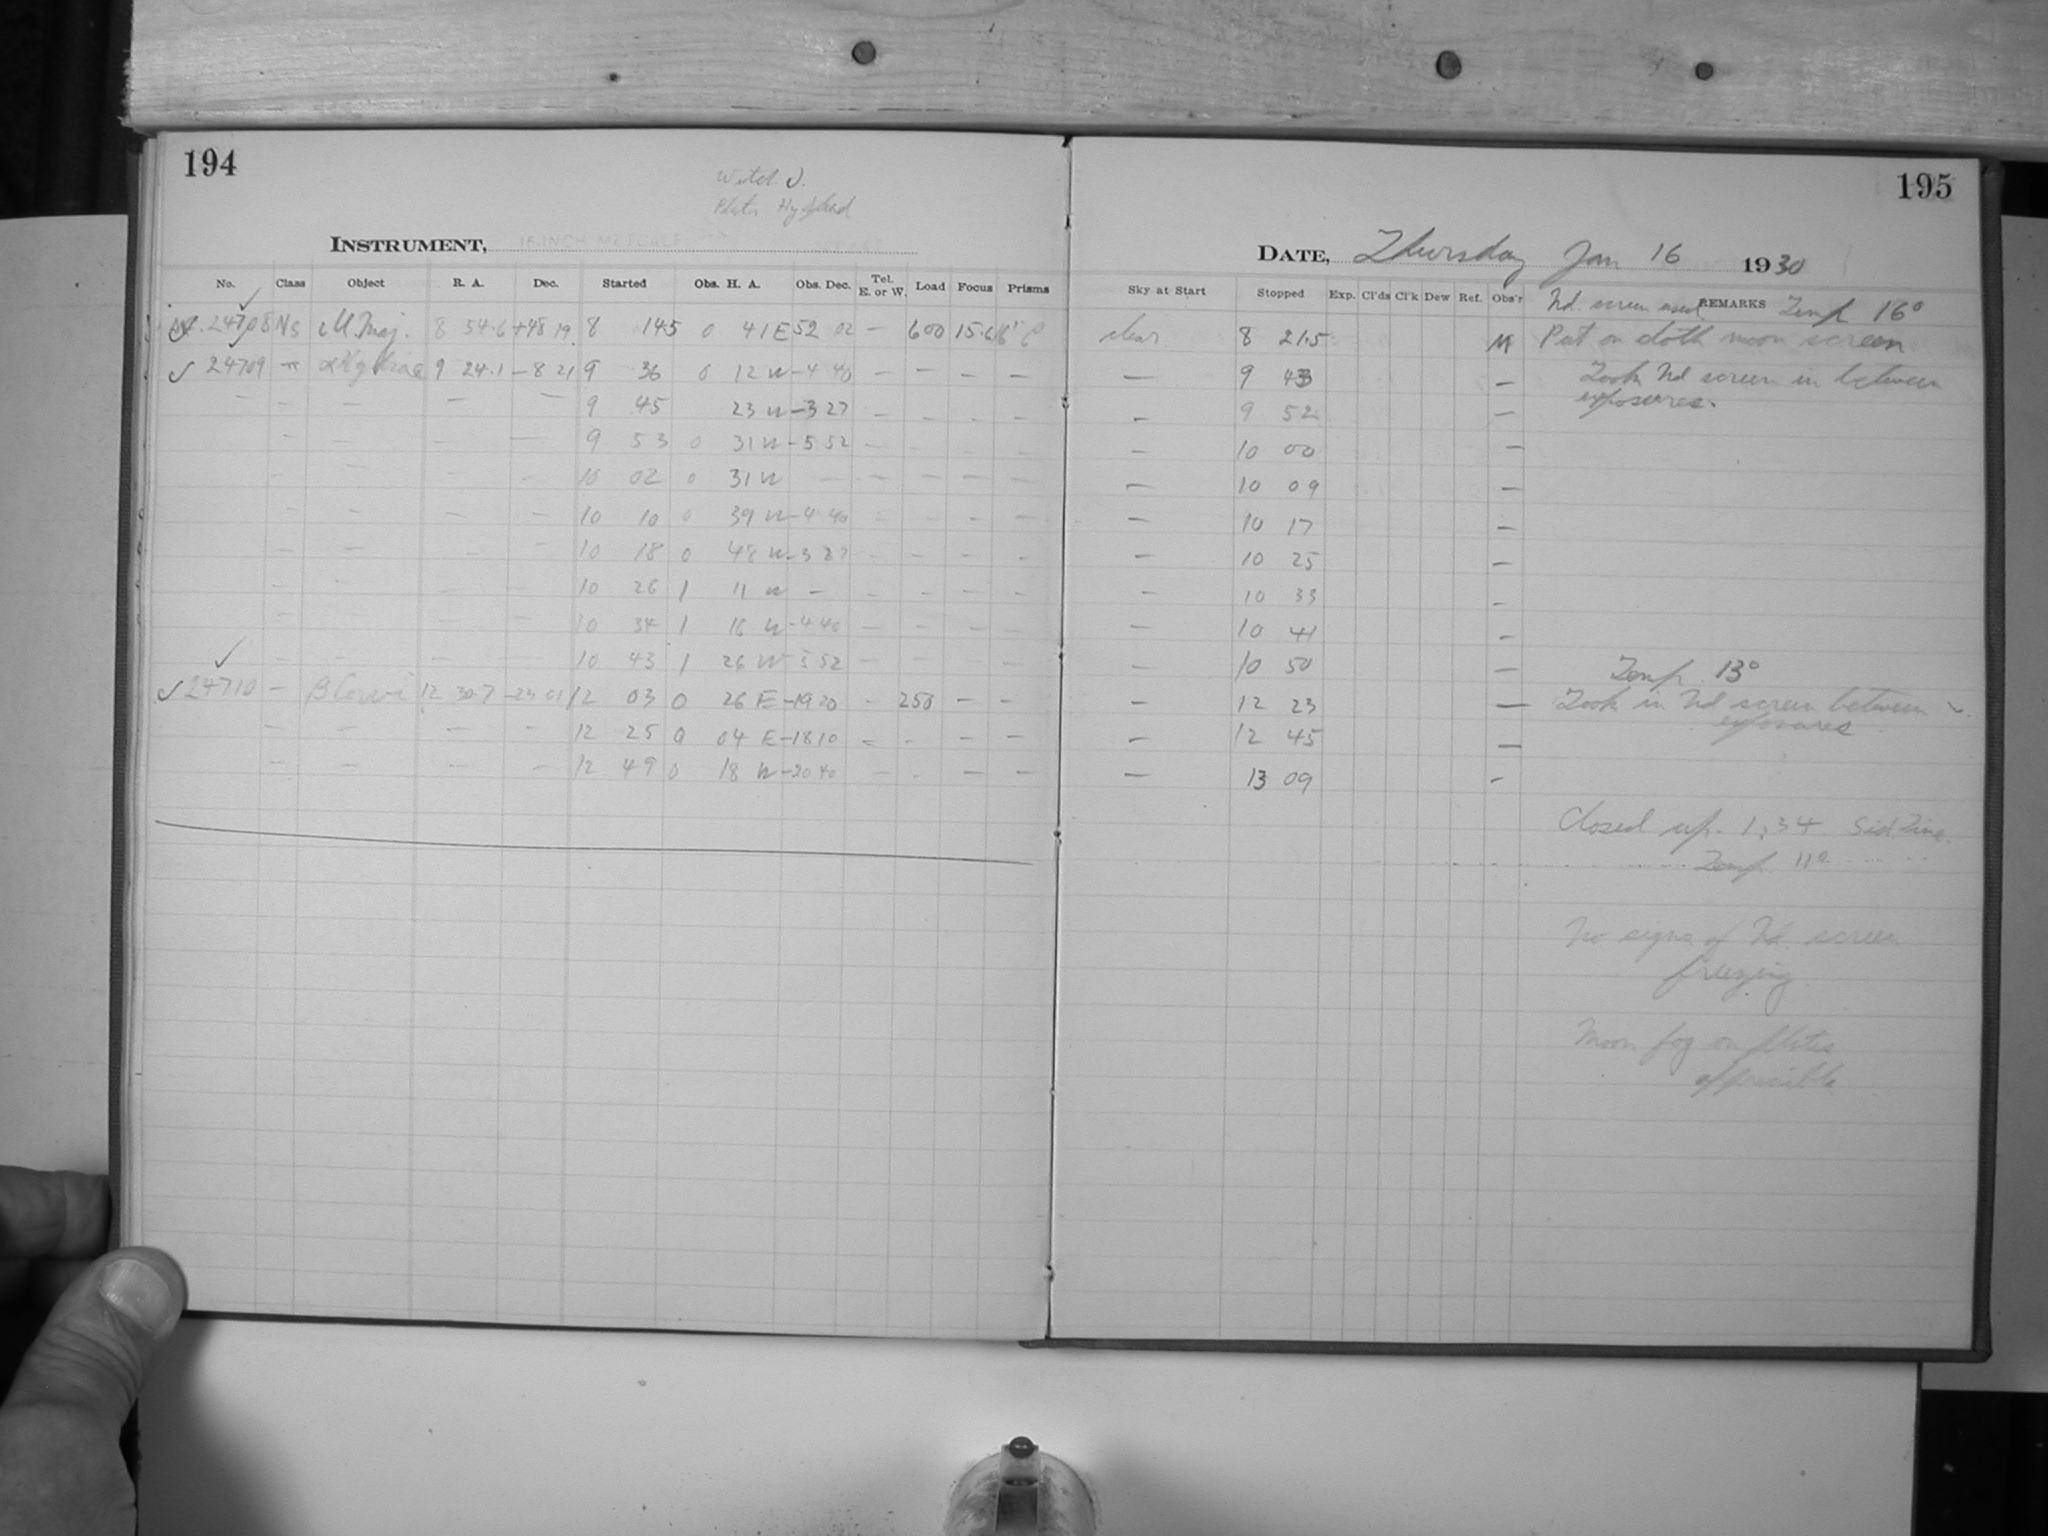 194
Plates Hy
INSTRUMENT, 16-INCH METCALF
No. Class Object R. A. Dec. Started Obs. H. A. Obs. Dec. Tel. E. or W. Load Focus Prisms
24708 NS M. Maj. 8 54.6 +48 19 8 14.5 0 41 E 52 02 — 600 15.6
✓ 24709 — α Hydrae 9 24.1 -8 21 9 36 0 12 W -4 40 — — — —
— — — — — 9 45 23 W -3 27 — — — —
— — — — 9 53 0 31 W -5 52 — — — —
— — — — 10 02 0 31 W — — — — —
— — — — 10 10 0 39 W -4 40 — — — —
— — — — 10 18 0 48 W -3 27 — — — —
— — — — 10 26 1 11 W — — — — —
— — — — 10 34 1 18 W -4 40 — — — —
— — — — 10 43 1 26 W -5 52 — — — —
✓ 24710 — β Corvi 12 30.7 -23 01 12 03 0 26 E -19 20 — 250 — —
— — — — 12 25 0 04 E -18 10 — — — —
— — — — 12 49 0 18 W -20 40 — — — —
195
DATE, Thursday Jan 16 1930
Sky at Start Stopped Exp. Cl'ds Cl'k Dew Ref. Obs'r REMARKS
Nd. screen used. Temp 16°
clear 8 21.5 M Put on cloth moon screen
— 9 43 — Took Nd screen in between
exposures.
— 9 52 —
— 10 00 —
— 10 09 —
— 10 17 —
— 10 25 —
— 10 33 —
— 10 41 —
— 10 50 — Temp. 13°
— 12 23 — Took in Nd screen between
exposures
— 12 45 —
— 13 09 —
Closed up. 1:34 Sid Time
Temp. 11°
No signs of Nd. screen
freezing
Moon fog on plates